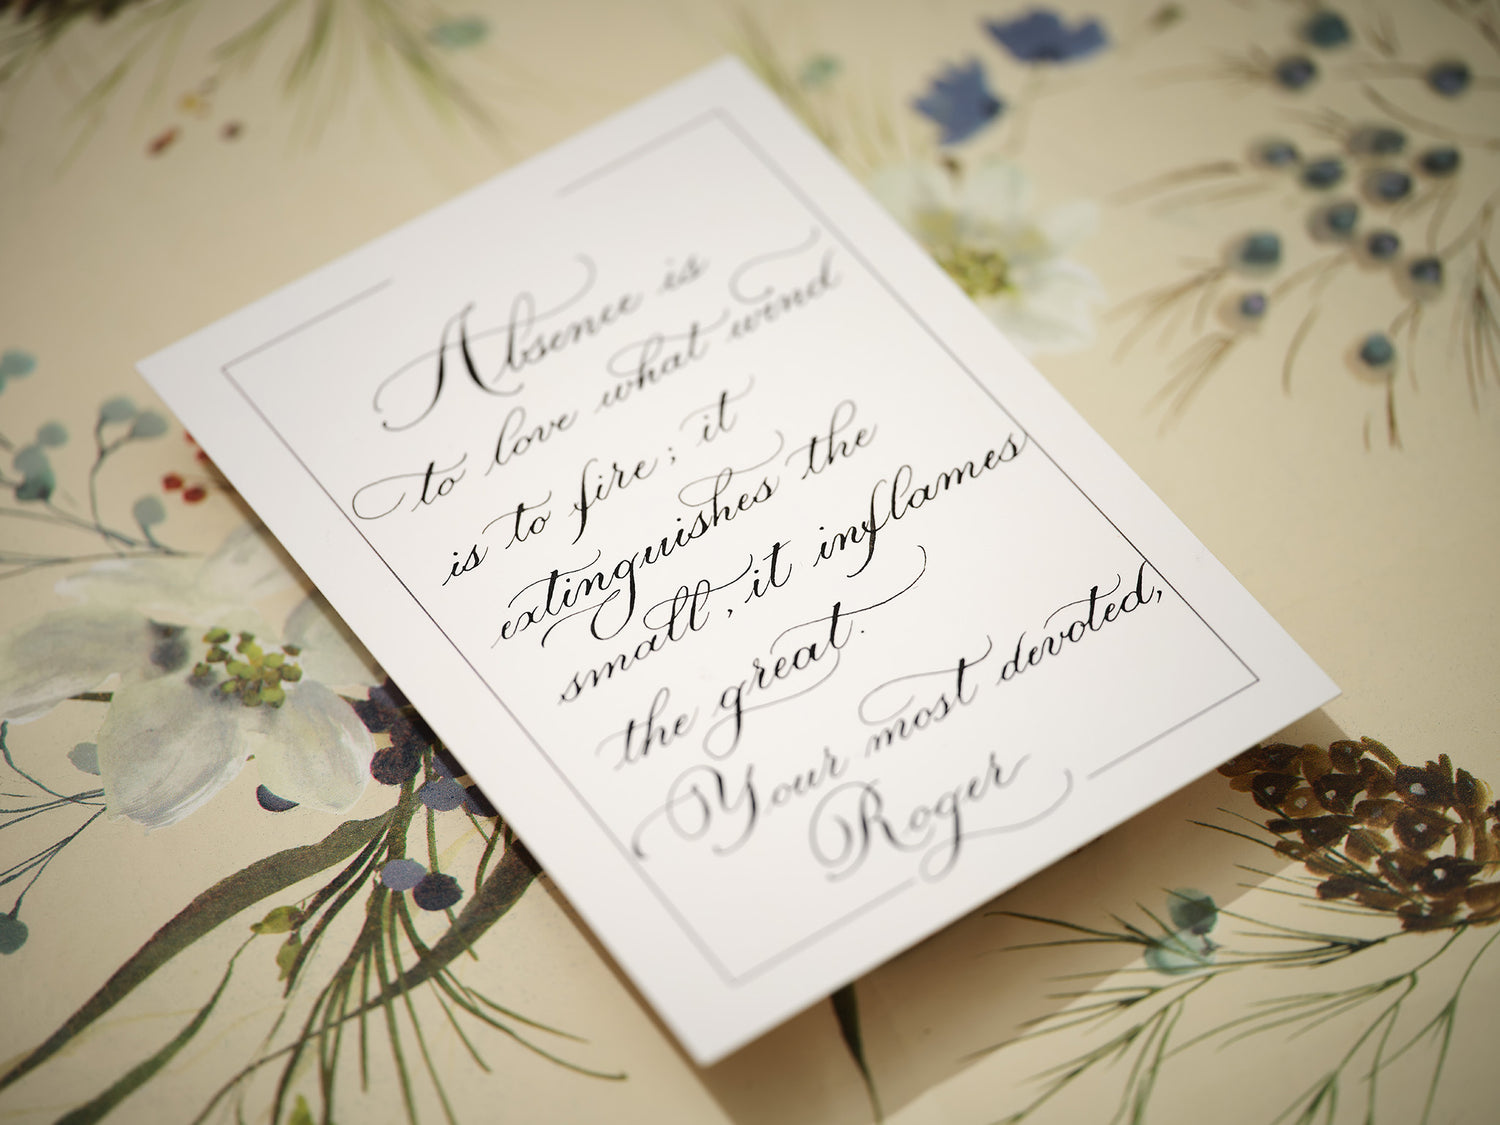 Absence is
to love what wind
is to fire; it
extinguishes the
small, it inflames
the great.
Your most devoted,
Roger